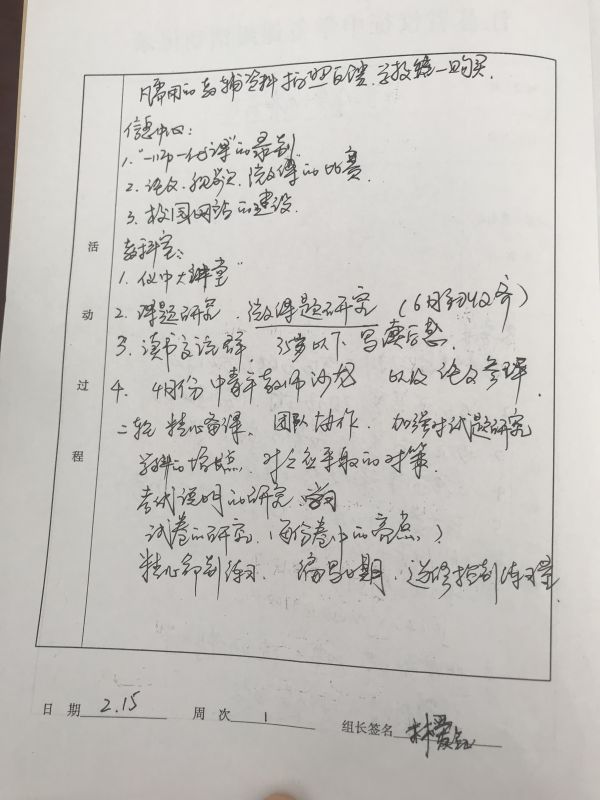 所需用的教辅资料按照自愿,学校统一购买.
信息中心:
1."一师一优课"的录制
2.论文、视频、微课的比赛.
3.校园网站的建设.
教科室:
1.仪中大讲堂"
2.课题研究.微型课题研究(6月到收齐)
3.读书交流群 35岁以下 写读后感.
4.4月份 中青年教师沙龙 以及论文参评.
二轮 精心备课、团队协作. 加强对试题研究
学科的增长点. 对应采取的对策.
考试说明的研究
试卷的研究.(每份卷中的亮点)
精心印制练习. 编写日期. 选修控制练习量
活动过程
日 期 2.15 周 次 1 组长签名